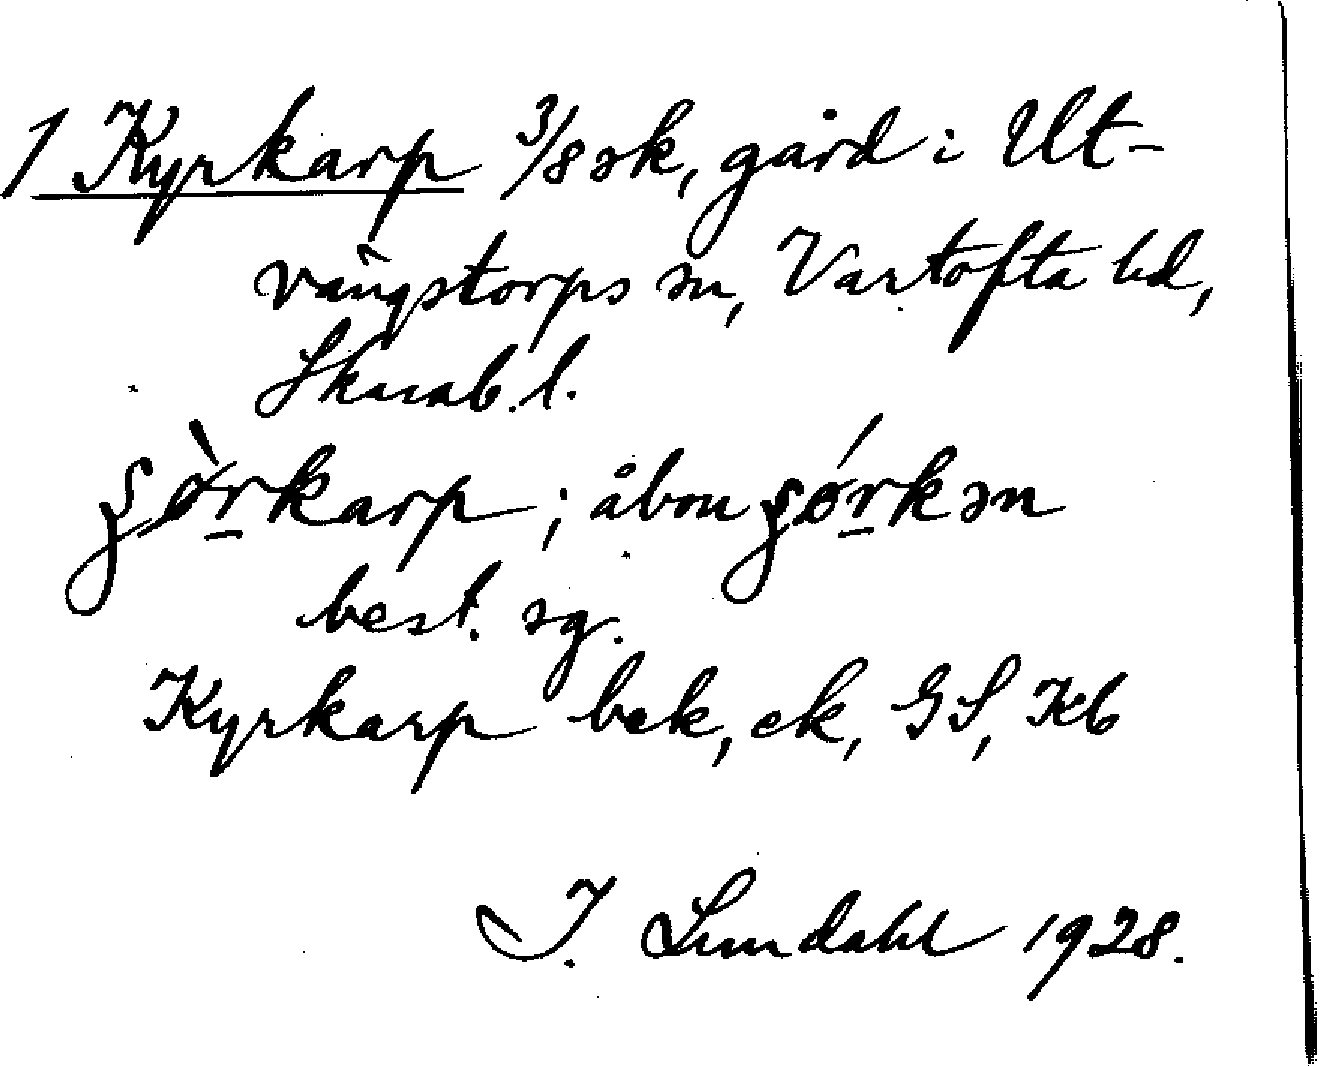 1 Kyrkarp 3/8 sk, gård i Ut-
vängstorps sn, Vartofta hd,
Skarab. l.
ʂø̀r̠karp; åbon ʂǿr̠kən
best. sg.
Kyrkarp bek, ek, GS, Kb
I. Lundahl 1928.